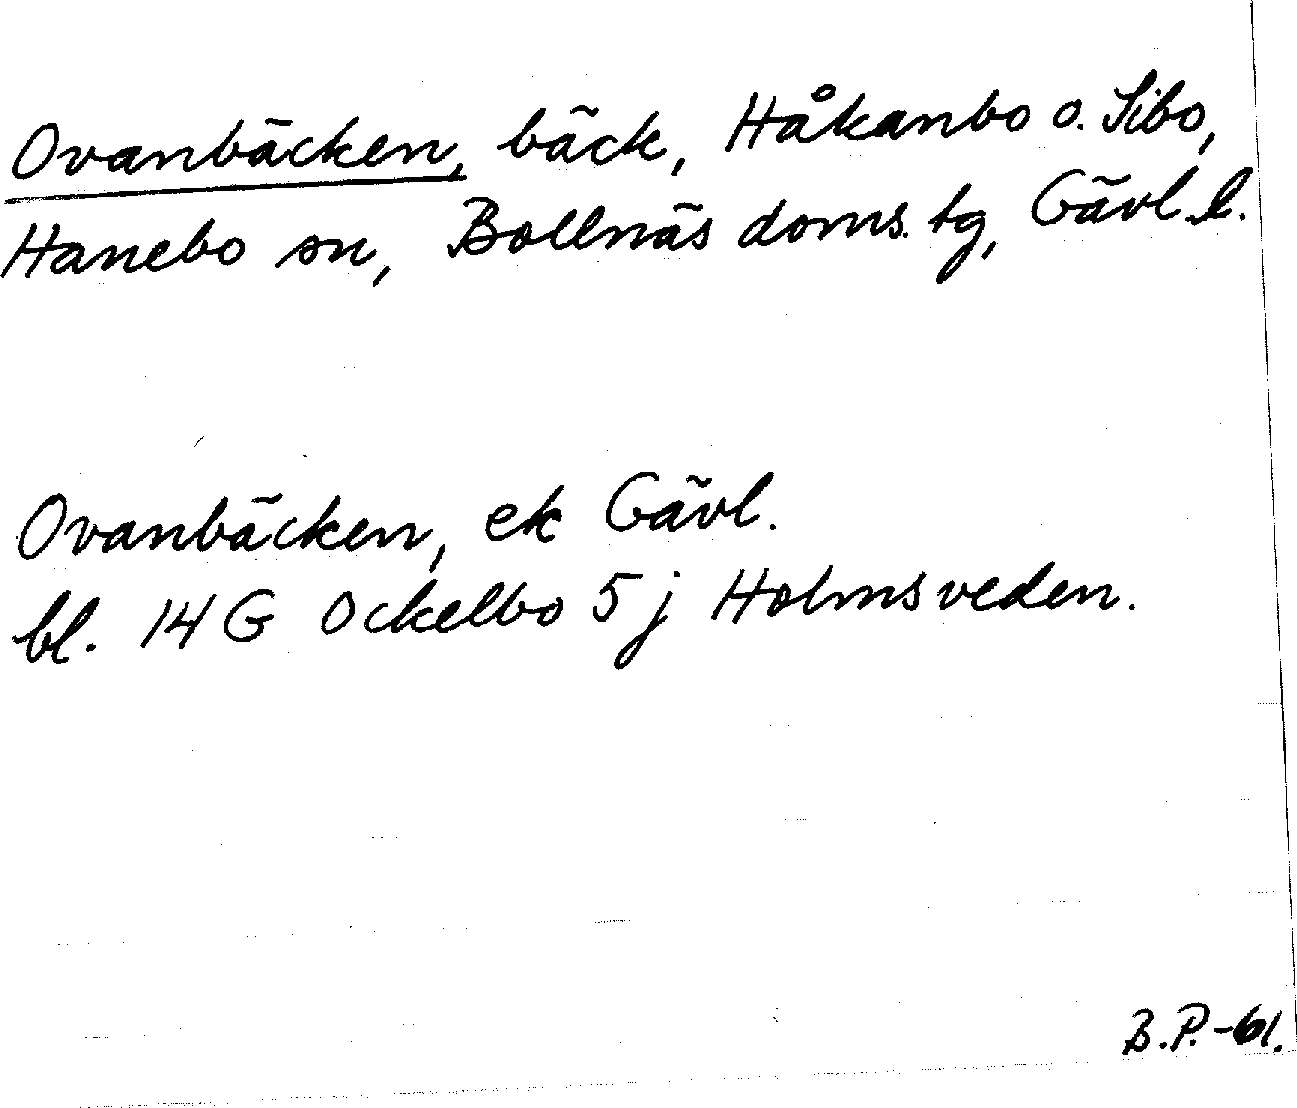 Ovanbäcken, bäck, Håkanbo o. Sibo,
Hanebo sn, Bollnäs doms. tg, Gävl. l.
Ovanbäcken, ek Gävl.
bl. 14 G Ockelbo 5 j Holmsveden.
B.P.-61.